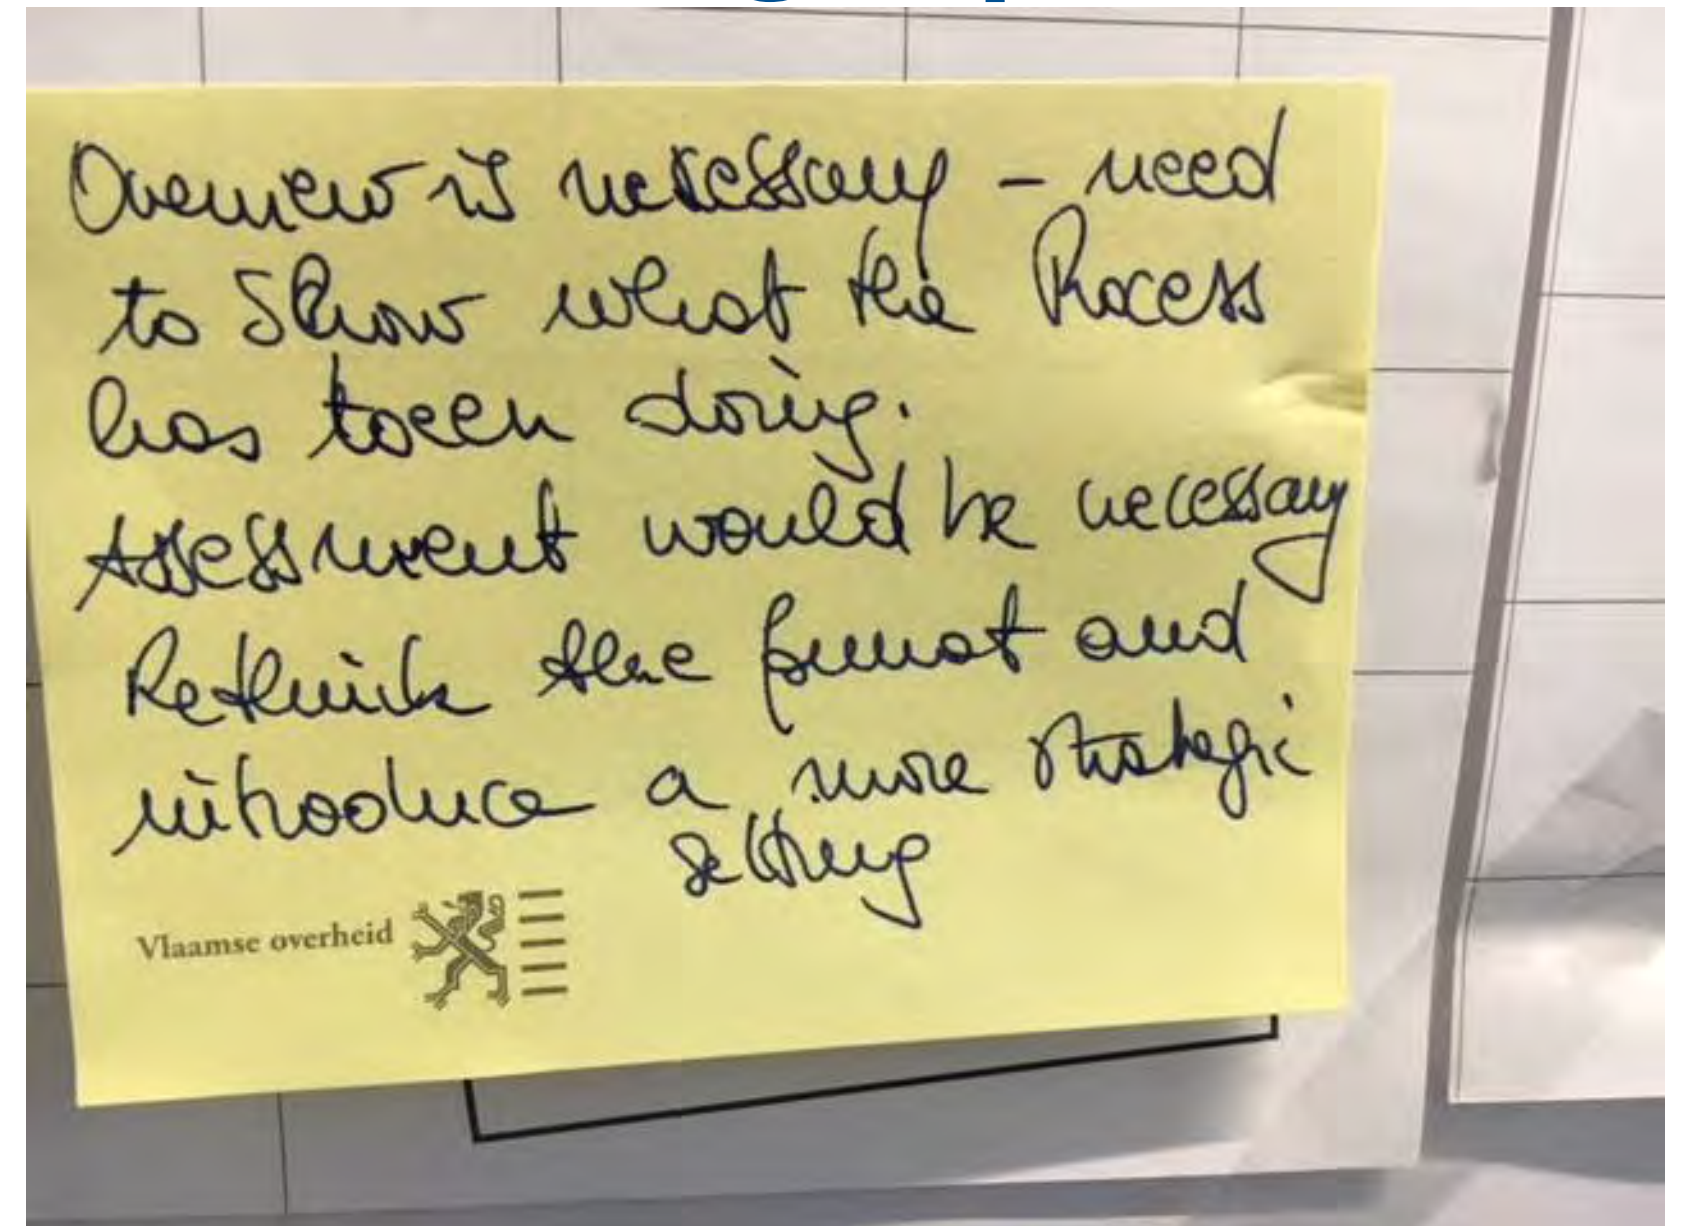 Overview is necessary – need
to show what the Process
has been doing.
Assessment would be necessary
Rethink the format and
introduce a more strategic
setting
Vlaamse overheid